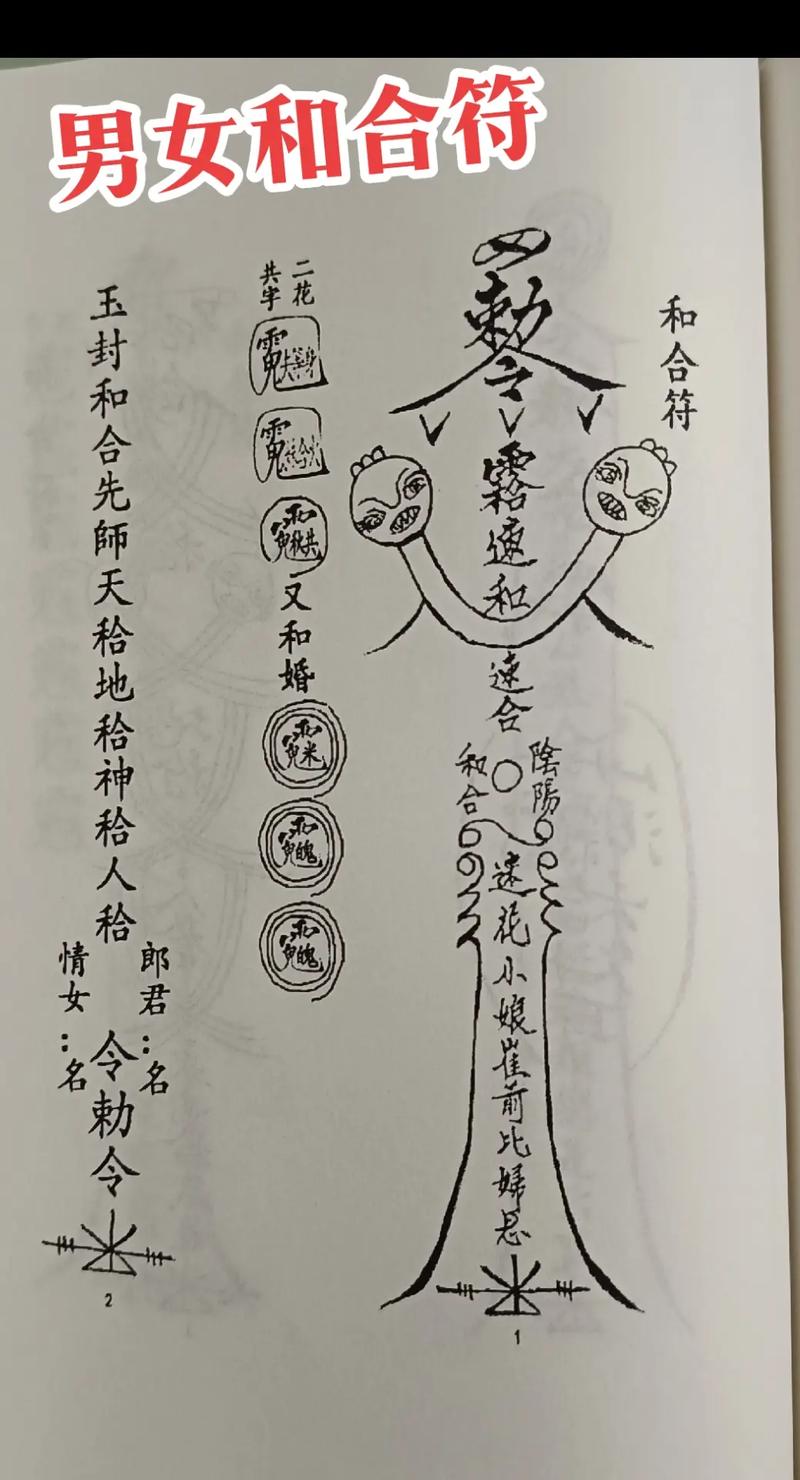 男女和合符
和合符
勅令
速和
速合
陰陽
和合
花小娘崔前比婦恩
1
二花
共字
又和婚
玉封和合先師天袷地袷神袷人袷
郎君：名
情女：名
令勅令
2